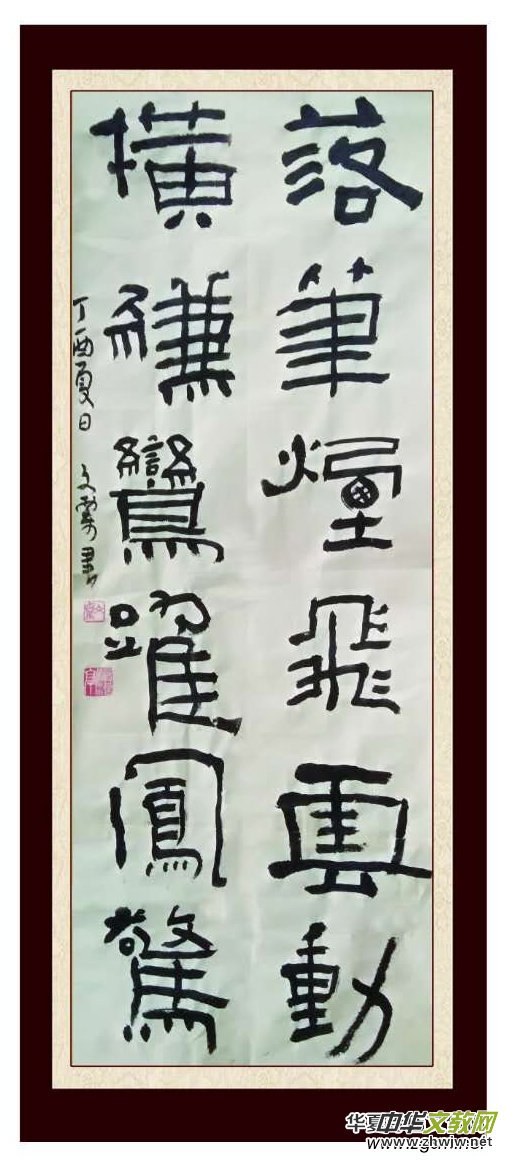 落筆煙飛雲動
橫縑鸞躍鳳驚
丁酉夏日 文 書
华夏中华文教网
www.zhwjw.net